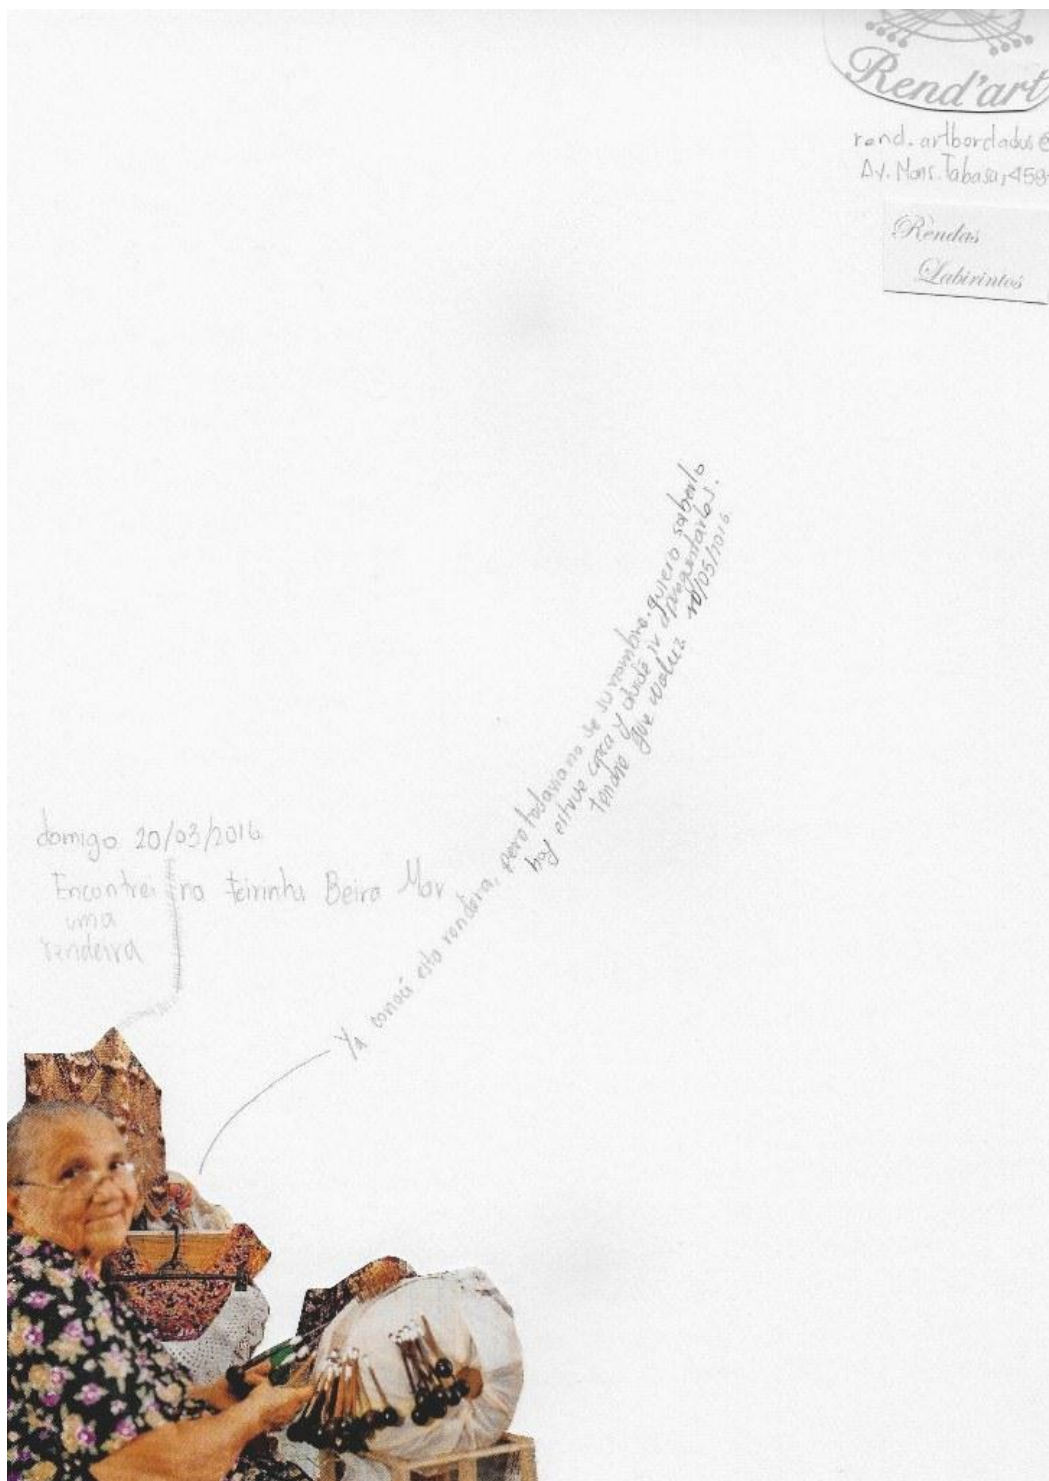 Rend'art
rend.artbordados@
Av. Mons. Tabosa, 459
Rendas
Labirintos
domigo 20/03/2016
Encontrei na feirinha Beira Mar
uma
rendeira
Ya conocí esta rendeira, pero todavia no se su nombre. quiero saberlo
hoy estuve cerca y dudé ir a preguntarles.
tendré que volver 10/05/2016.